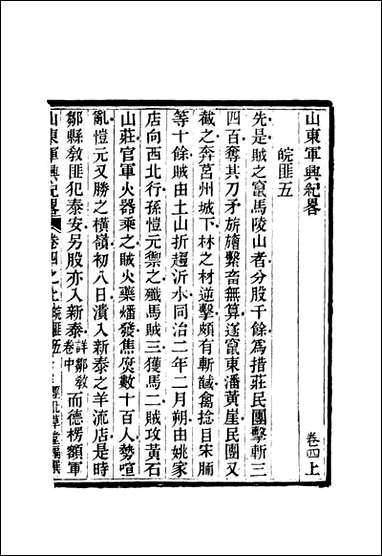 山東軍興紀畧　卷四上
皖匪五
先是賊之竄馬陵山者分股千餘爲措莊民團擊斬三
四百奪其刀矛旂旛繫畜無算遂竄東潘黃崖民團又
截之奔莒州城下林之材逆擊頗有斬馘禽捻目宋腩
等十餘賊由土山折趨沂水同治二年二月朔由姚家
店向西北行孫愷元禦之殲馬賊三獲馬二賊攻黃石
山莊官軍火器乘之賊火藥燔發焦炭數十百人勢喧
亂愷元又勝之橫嶺初八日潰入新泰之羊流店是時
鄒縣教匪犯泰安另股亦入新泰詳鄒教卷中而德楞額軍
山東軍興紀畧 卷四之上 皖匪五